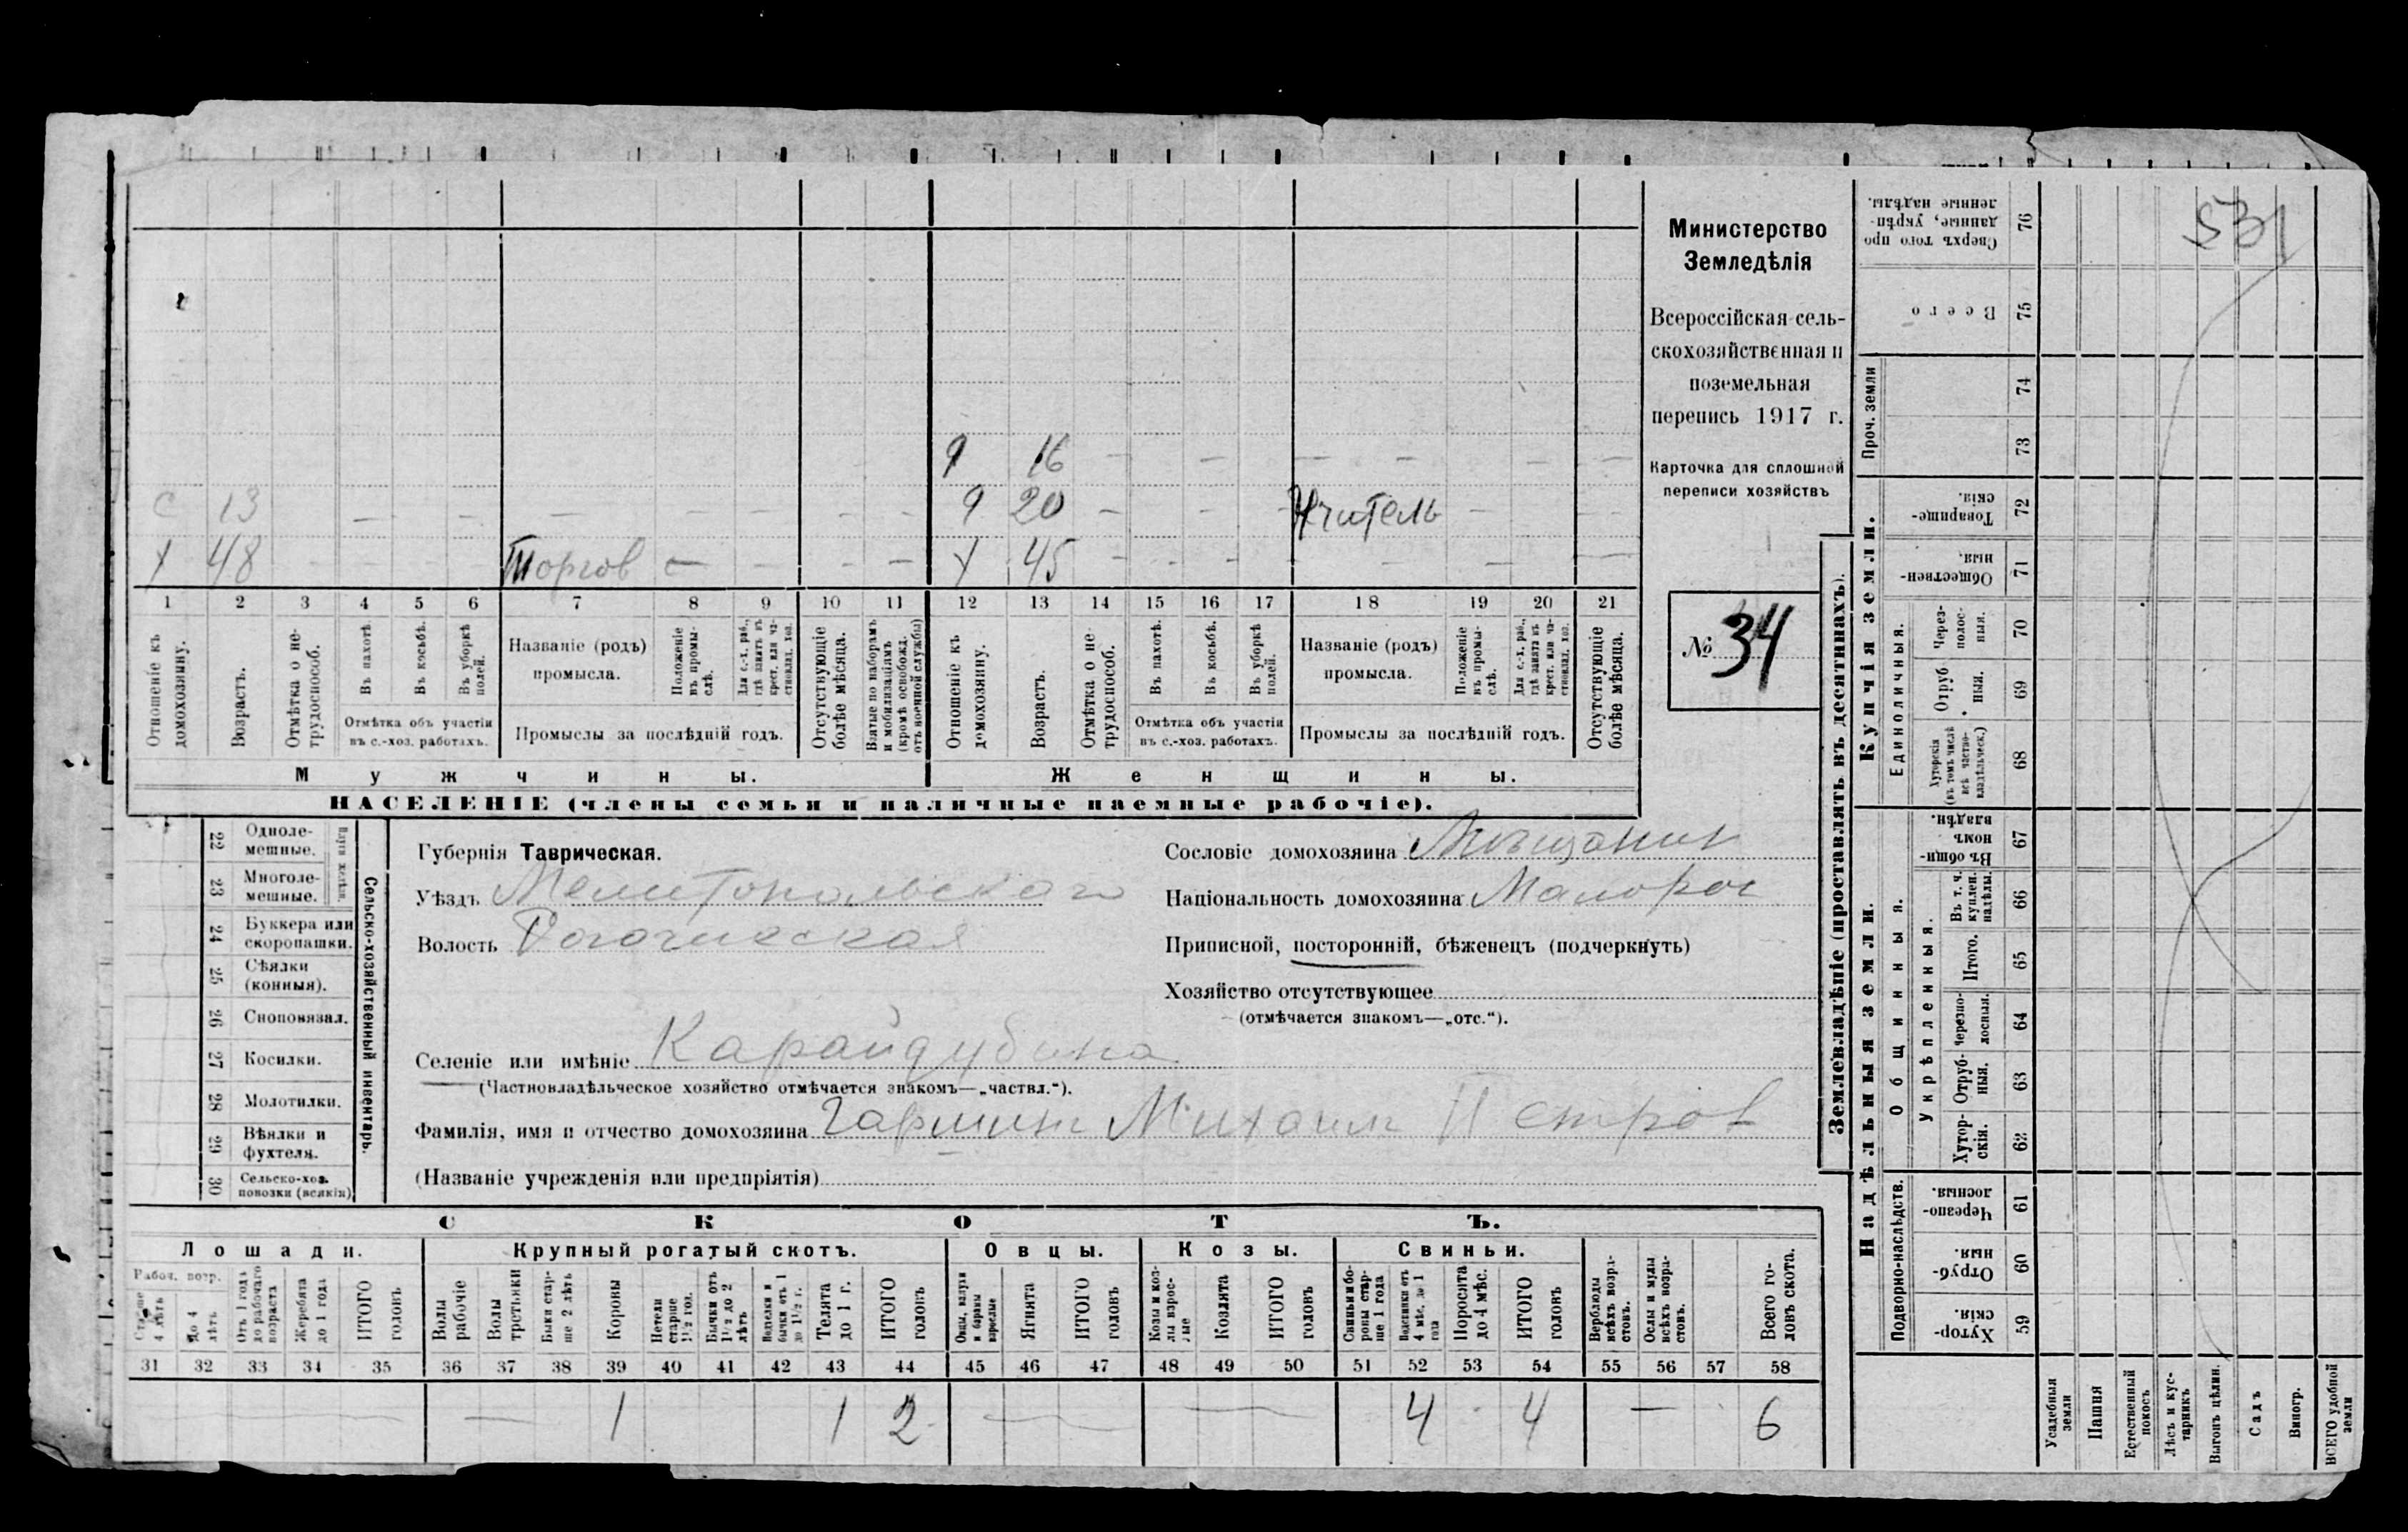 Министерство
Земледѣлія
Всероссійская сель-
скохозяйственная и
поземельная
перепись 1917 г.
Карточка для сплошной
переписи хозяйствъ
№ 34
531
9 16 — — — — — —
с 13 — — — — — — 9 20 — — Учитель —
х 48 — — — — Торгов с — — — — х 45 — — — — — —
1 2 3 4 5 6 7 8 9 10 11 12 13 14 15 16 17 18 19 20 21
Отношеніе къ домохозяину.
Возрастъ.
Отмѣтка о не-трудоспособ.
Въ пахотѣ.
Въ косьбѣ.
Въ уборкѣ полей.
Отмѣтка объ участіи
въ с.-хоз. работахъ.
Названіе (родъ)
промысла.
Положеніе въ промы-слѣ.
Для с.-х. раб., гдѣ занятъ въ крест. или ча-стновлад. хоз.
Промыслы за послѣдній годъ.
Отсутствующіе болѣе мѣсяца.
Взятые по наборамъ и мобилизаціямъ (кромѣ освобожд. отъ военной службы)
Отношеніе къ домохозяину.
Возрастъ.
Отмѣтка о не-трудоспособ.
Въ пахотѣ.
Въ косьбѣ.
Въ уборкѣ полей.
Отмѣтка объ участіи
въ с.-хоз. работахъ.
Названіе (родъ)
промысла.
Положеніе въ промы-слѣ.
Для с.-х. раб., гдѣ занята въ крест. или ча-стновлад. хоз.
Промыслы за послѣдній годъ.
Отсутствующіе болѣе мѣсяца.
Мужчины. Женщины.
НАСЕЛЕНІЕ (члены семьи и наличные наемные рабочіе).
22 Одноле-мешные.
23 Многоле-мешные.
24 Буккера или скоропашки.
25 Сѣялки (конныя).
26 Сноповязал.
27 Косилки.
28 Молотилки.
29 Вѣялки и фухтеля.
30 Сельско-хоз. повозки (всякія)
Сельско-хозяйственный инвентарь.
Губернія Таврическая.
Уѣздъ Мелитопольскаго
Волость Рогачикская
Сословіе домохозяина Мѣщанин
Національность домохозяина Малорос
Приписной, посторонній, бѣженецъ (подчеркнуть)
Хозяйство отсутствующее
(отмѣчается знакомъ—„отс.“).
Селеніе или имѣніе Карайдубина
(Частновладѣльческое хозяйство отмѣчается знакомъ—„частвл.“).
Фамилія, имя и отчество домохозяина Гармин Михаил Петров
(Названіе учрежденія или предпріятія)
СКОТЪ.
Лошади. Крупный рогатый скотъ. Овцы. Козы. Свиньи.
Рабоч. возр.
Старше 4 лѣтъ
До 4 лѣтъ
Отъ 1 года до рабочаго возраста
Жеребята до 1 года
ИТОГО головъ
Волы рабочіе
Волы третьяки
Быки стар-ше 2 лѣтъ
Коровы
Нетели старше 1½ год.
Бычки отъ 1½ до 2 лѣтъ
Телки и бычки отъ 1 до 1½ г.
Телята до 1 г.
ИТОГО головъ
Овцы, валухи и бараны взрослые
Ягнята
ИТОГО головъ
Козы и коз-лы взрос-лые
Козлята
ИТОГО головъ
Свиньи и бо-ровы стар-ше 1 года
Подсвинки отъ 4 мѣс. до 1 года
Поросята до 4 мѣс.
ИТОГО головъ
Верблюды всѣхъ возра-стовъ.
Ослы и мулы всѣхъ возра-стовъ.
Всего го-ловъ скота.
31 32 33 34 35 36 37 38 39 40 41 42 43 44 45 46 47 48 49 50 51 52 53 54 55 56 57 58
— — 1 1 2 — — 4 4 — 6
Землевладѣніе (проставлять въ десятинахъ).
Надѣльныя земли. Купчія земли.
Подворно-наслѣдств.
Общинныя.
Укрѣпленныя.
Единоличныя.
Проч. земли
Сверхъ того про данные, укрѣп-ленные надѣлы. 76
Всего 75
74
73
Товарище-скія. 72
Обществен-ныя. 71
Через-полос-ныя. 70
Отруб-ныя. 69
Хуторскія (въ томъ числѣ всѣ частно-владѣльческ.) 68
Въ общин-номъ владѣн. 67
Въ т. ч. куплен. надѣлы. 66
Итого. 65
Черезпо-лосныя. 64
Отруб-ныя. 63
Хутор-скія. 62
Черезпо-лосныя. 61
Отруб-ныя. 60
Хутор-скія. 59
Усадебныя земли
Пашня
Естественный покосъ
Лѣсъ и кус-тарникъ
Выгонъ цѣлин.
Садъ
Виногр.
ВСЕГО удобной земли